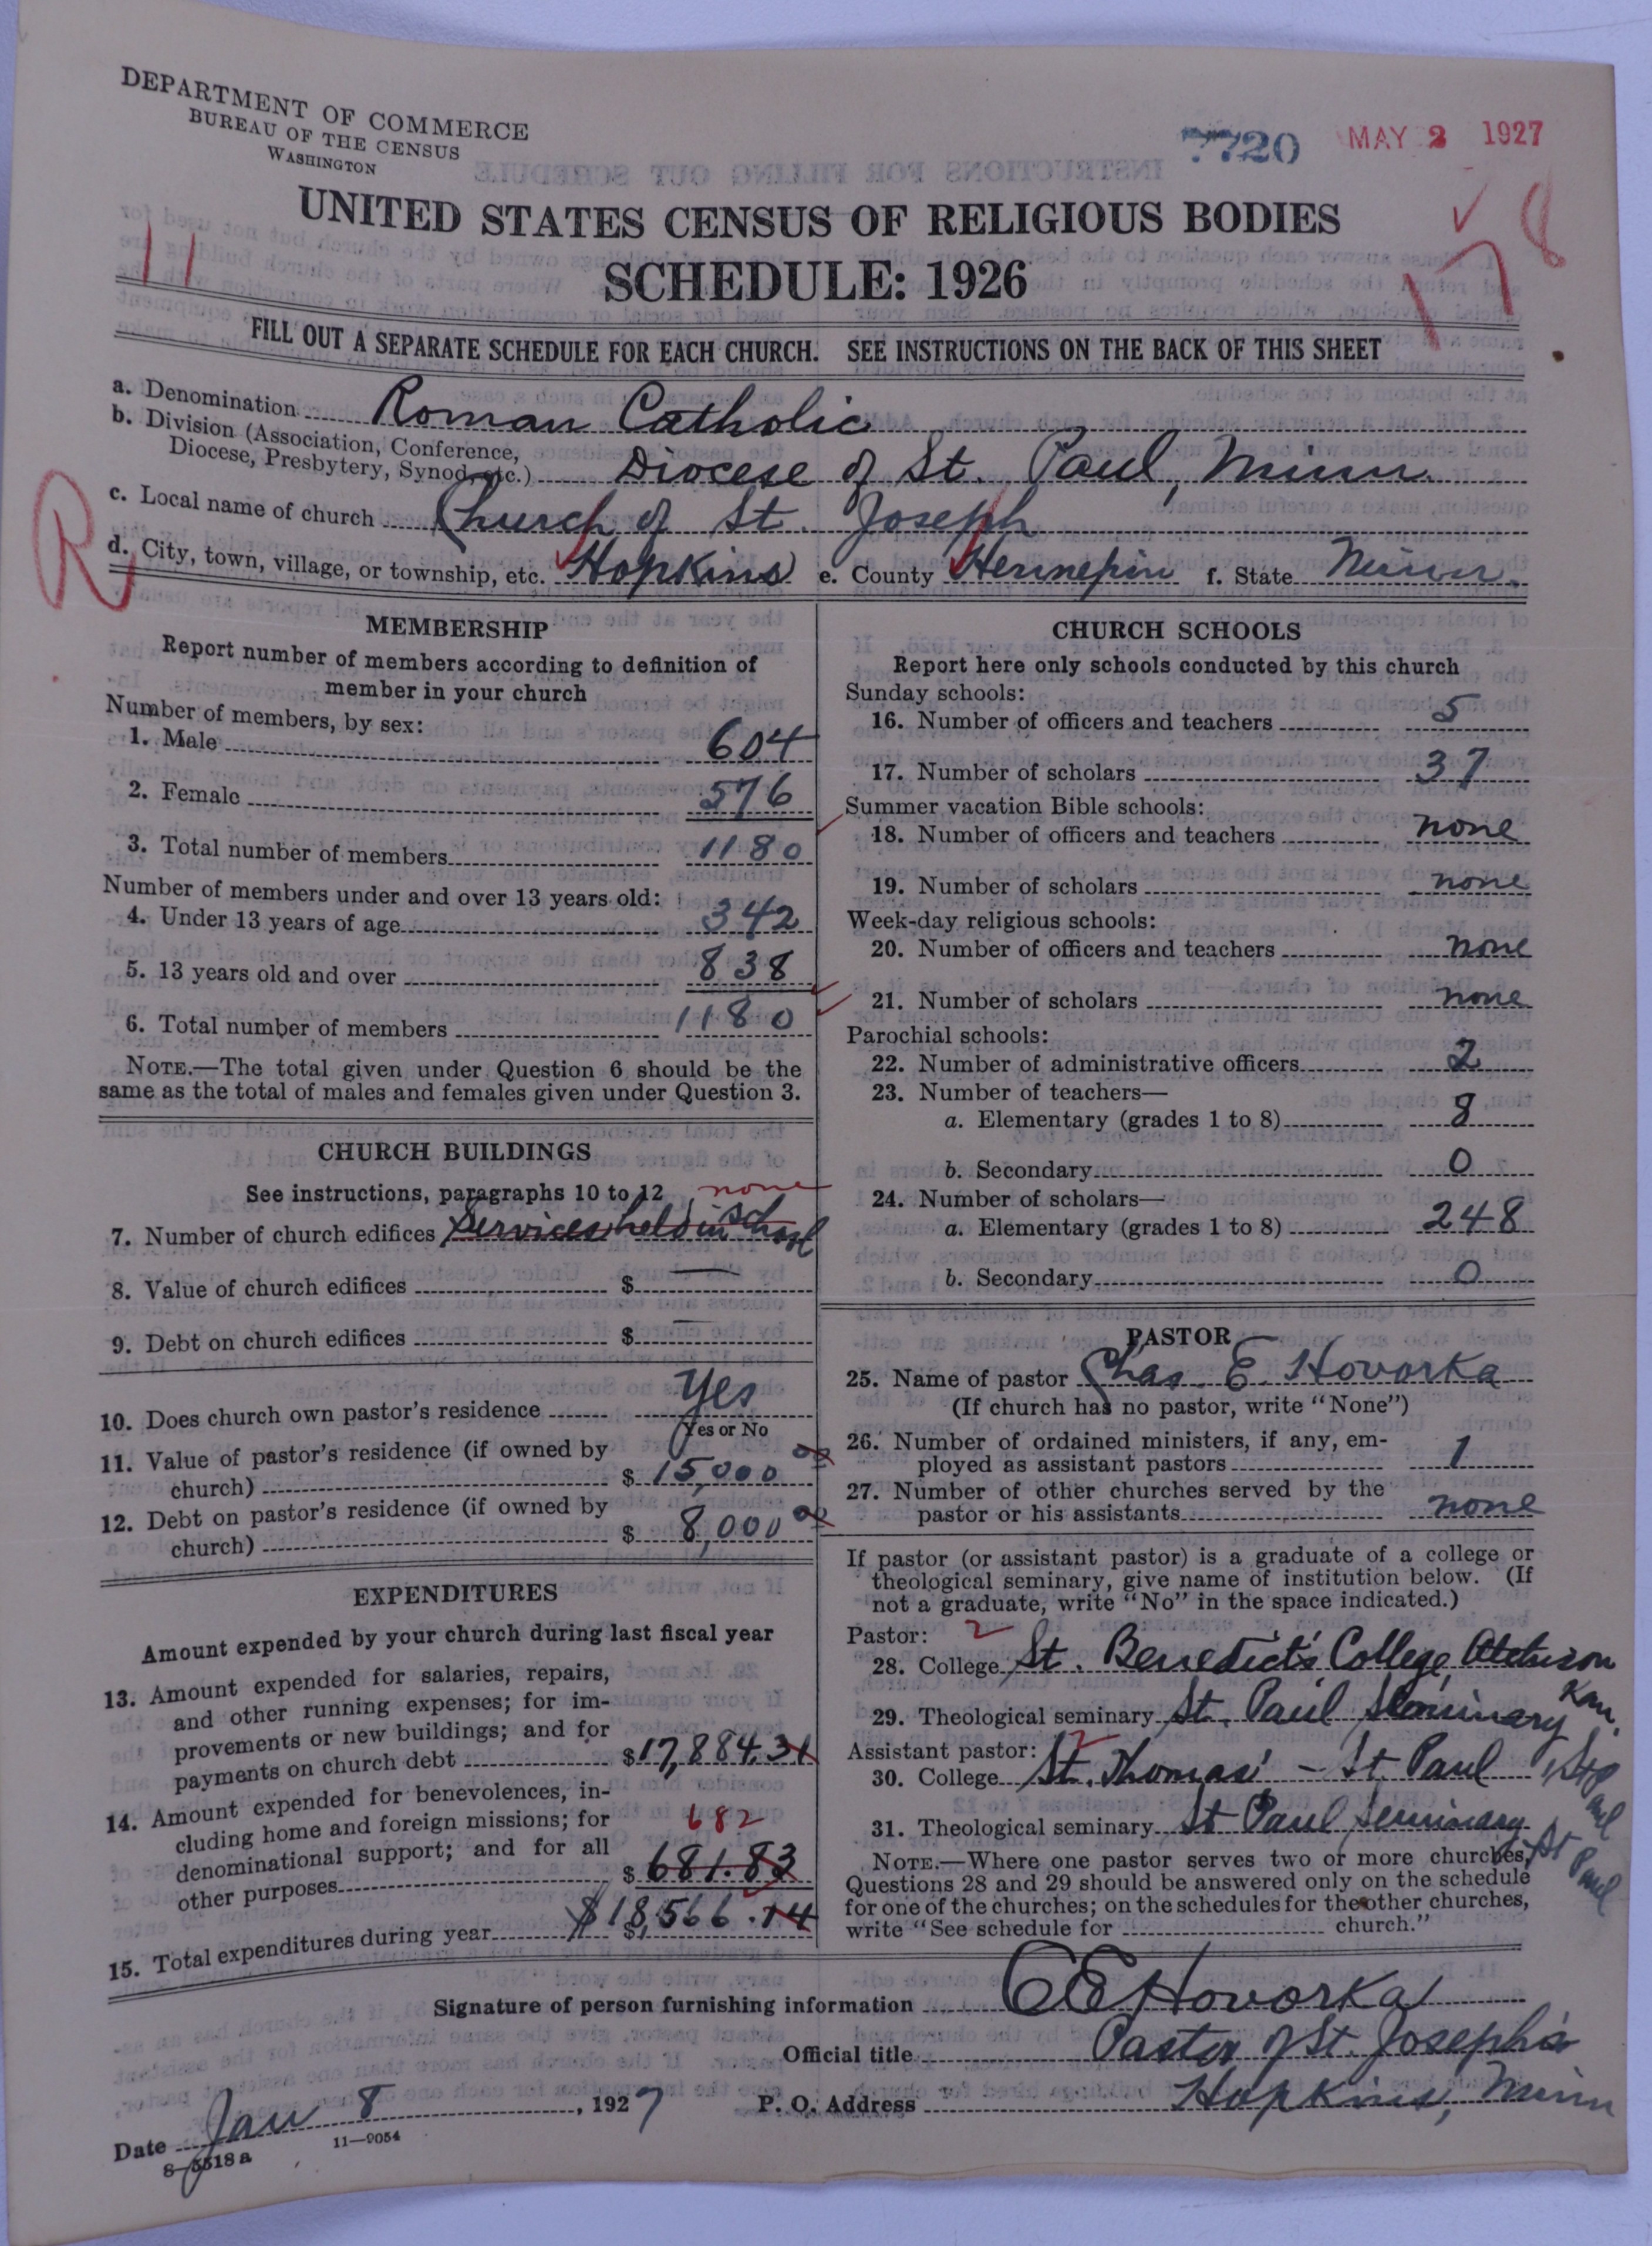 DEPARTMENT OF COMMERCE
BUREAU OF THE CENSUS
WASHINGTON
7720 MAY 2 1927
UNITED STATES CENSUS OF RELIGIOUS BODIES
11 178
SCHEDULE: 1926
FILL OUT A SEPARATE SCHEDULE FOR EACH CHURCH. SEE INSTRUCTIONS ON THE BACK OF THIS SHEET
a. Denomination Roman Catholic
b. Division (Association, Conference, Diocese, Presbytery, Synod, etc.) Diocese of St. Paul, Minn.
c. Local name of church Church of St. Joseph
R
d. City, town, village, or township, etc. Hopkins e. County Hennepin f. State Minn.
MEMBERSHIP
Report number of members according to definition of
member in your church
Number of members, by sex:
1. Male 604
2. Female 576
3. Total number of members 1180
Number of members under and over 13 years old:
4. Under 13 years of age 342
5. 13 years old and over 838
6. Total number of members 1180
NOTE.—The total given under Question 6 should be the
same as the total of males and females given under Question 3.
CHURCH BUILDINGS
See instructions, paragraphs 10 to 12 none
7. Number of church edifices Services held in School
8. Value of church edifices $ —
9. Debt on church edifices $ —
10. Does church own pastor's residence Yes
Yes or No
11. Value of pastor's residence (if owned by
church) $ 15,000 00
12. Debt on pastor's residence (if owned by
church) $ 8,000 00
EXPENDITURES
Amount expended by your church during last fiscal year
13. Amount expended for salaries, repairs,
and other running expenses; for im-
provements or new buildings; and for
payments on church debt $17,884.31
14. Amount expended for benevolences, in-
cluding home and foreign missions; for 682
denominational support; and for all
other purposes $ 681.83
15. Total expenditures during year $ $18,566.14
CHURCH SCHOOLS
Report here only schools conducted by this church
Sunday schools:
16. Number of officers and teachers 5
17. Number of scholars 37
Summer vacation Bible schools:
18. Number of officers and teachers none
19. Number of scholars none
Week-day religious schools:
20. Number of officers and teachers none
21. Number of scholars none
Parochial schools:
22. Number of administrative officers 2
23. Number of teachers—
a. Elementary (grades 1 to 8) 8
b. Secondary 0
24. Number of scholars—
a. Elementary (grades 1 to 8) 248
b. Secondary 0
PASTOR
25. Name of pastor Chas. E. Hovorka
(If church has no pastor, write "None")
26. Number of ordained ministers, if any, em-
ployed as assistant pastors 1
27. Number of other churches served by the
pastor or his assistants none
If pastor (or assistant pastor) is a graduate of a college or
theological seminary, give name of institution below. (If
not a graduate, write "No" in the space indicated.)
Pastor: 2
28. College St. Benedict's College, Atchison Kan.
29. Theological seminary St. Paul Seminary St Paul
Assistant pastor: 2
30. College St. Thomas' - St Paul
31. Theological seminary St Paul Seminary St Paul
NOTE.—Where one pastor serves two or more churches,
Questions 28 and 29 should be answered only on the schedule
for one of the churches; on the schedules for the other churches,
write "See schedule for church."
Signature of person furnishing information C E Hovorka
Official title Pastor of St. Joseph's
Date Jan 8, 1927 P. O. Address Hopkins, Minn
8—5518a 11—9054